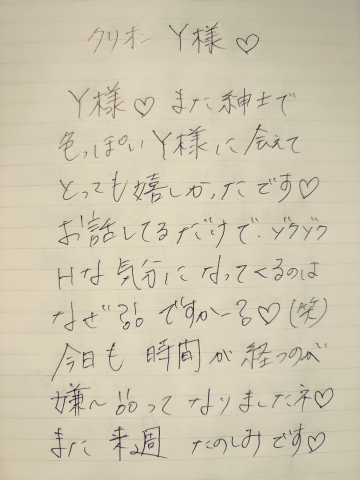 クリオネ Y様♡
Y様♡ また紳士で
色っぽいY様に会えて
とっても嬉しかったです♡
お話してるだけで、ゾクゾク
Hな気分になってくるのは
なぜ ですかーる♡(笑)
今日も 時間が経つのが
嫌〜 って なりましたネ♡
また 来週 たのしみです♡